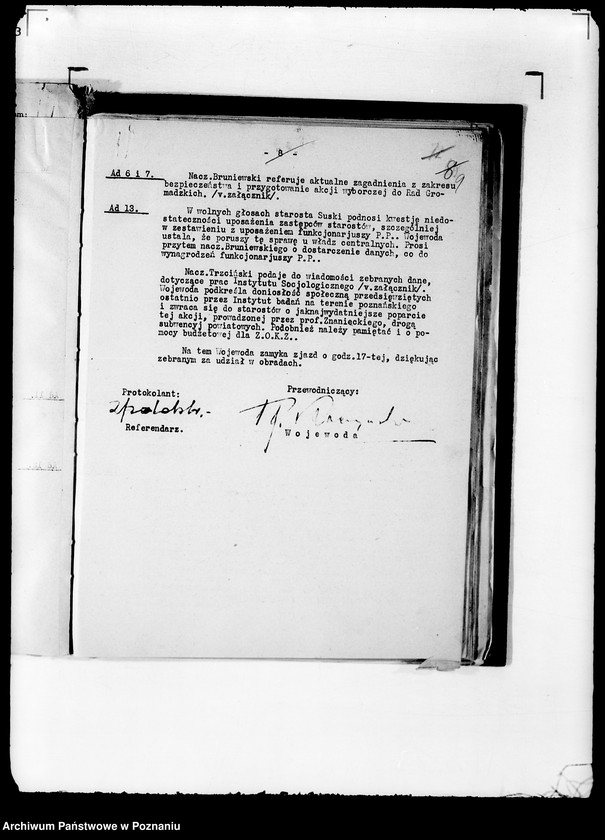 3
am:
- 8 -
8
Ad 6 i 7. Nacz.Bruniewski referuje aktualne zagadnienia z zakresu
bezpieczeństwa i przygotowanie akcji wyborczej do Rad Gro-
madzkich. /v.załącznik/.
Ad 13. W wolnych głosach starosta Suski podnosi kwestję niedo-
stateczności uposażenia zastępców starostów, szczególniej
w zestawieniu z uposażeniem funkcjonarjuszy P.P.. Wojewoda
ustala, że poruszy tę sprawę u władz centralnych. Prosi
przytem nacz.Bruniewskiego o dostarczenie danych, co do
wynagrodzeń funkcjonarjuszy P.P..
Nacz.Trzciński podaje do wiadomości zebranych dane,
dotyczące prac Instytutu Socjologicznego /v.załącznik/.
Wojewoda podkreśla doniosłość społeczną przedsięwziętych
ostatnio przez Instytut badań na terenie poznańskiego
i zwraca się do starostów o jaknajwydatniejsze poparcie
tej akcji, prowadzonej przez prof.Znanieckiego, drogą
subwencyj powiatowych. Podobnież należy pamiętać i o po-
mocy budżetowej dla Z.O.K.Z..
Na tem Wojewoda zamyka zjazd o godz.17-tej, dziękując
zebranym za udział w obradach.
Protokolant: Przewodniczący:
Referendarz. Wojewoda
Archiwum Państwowe w Poznaniu